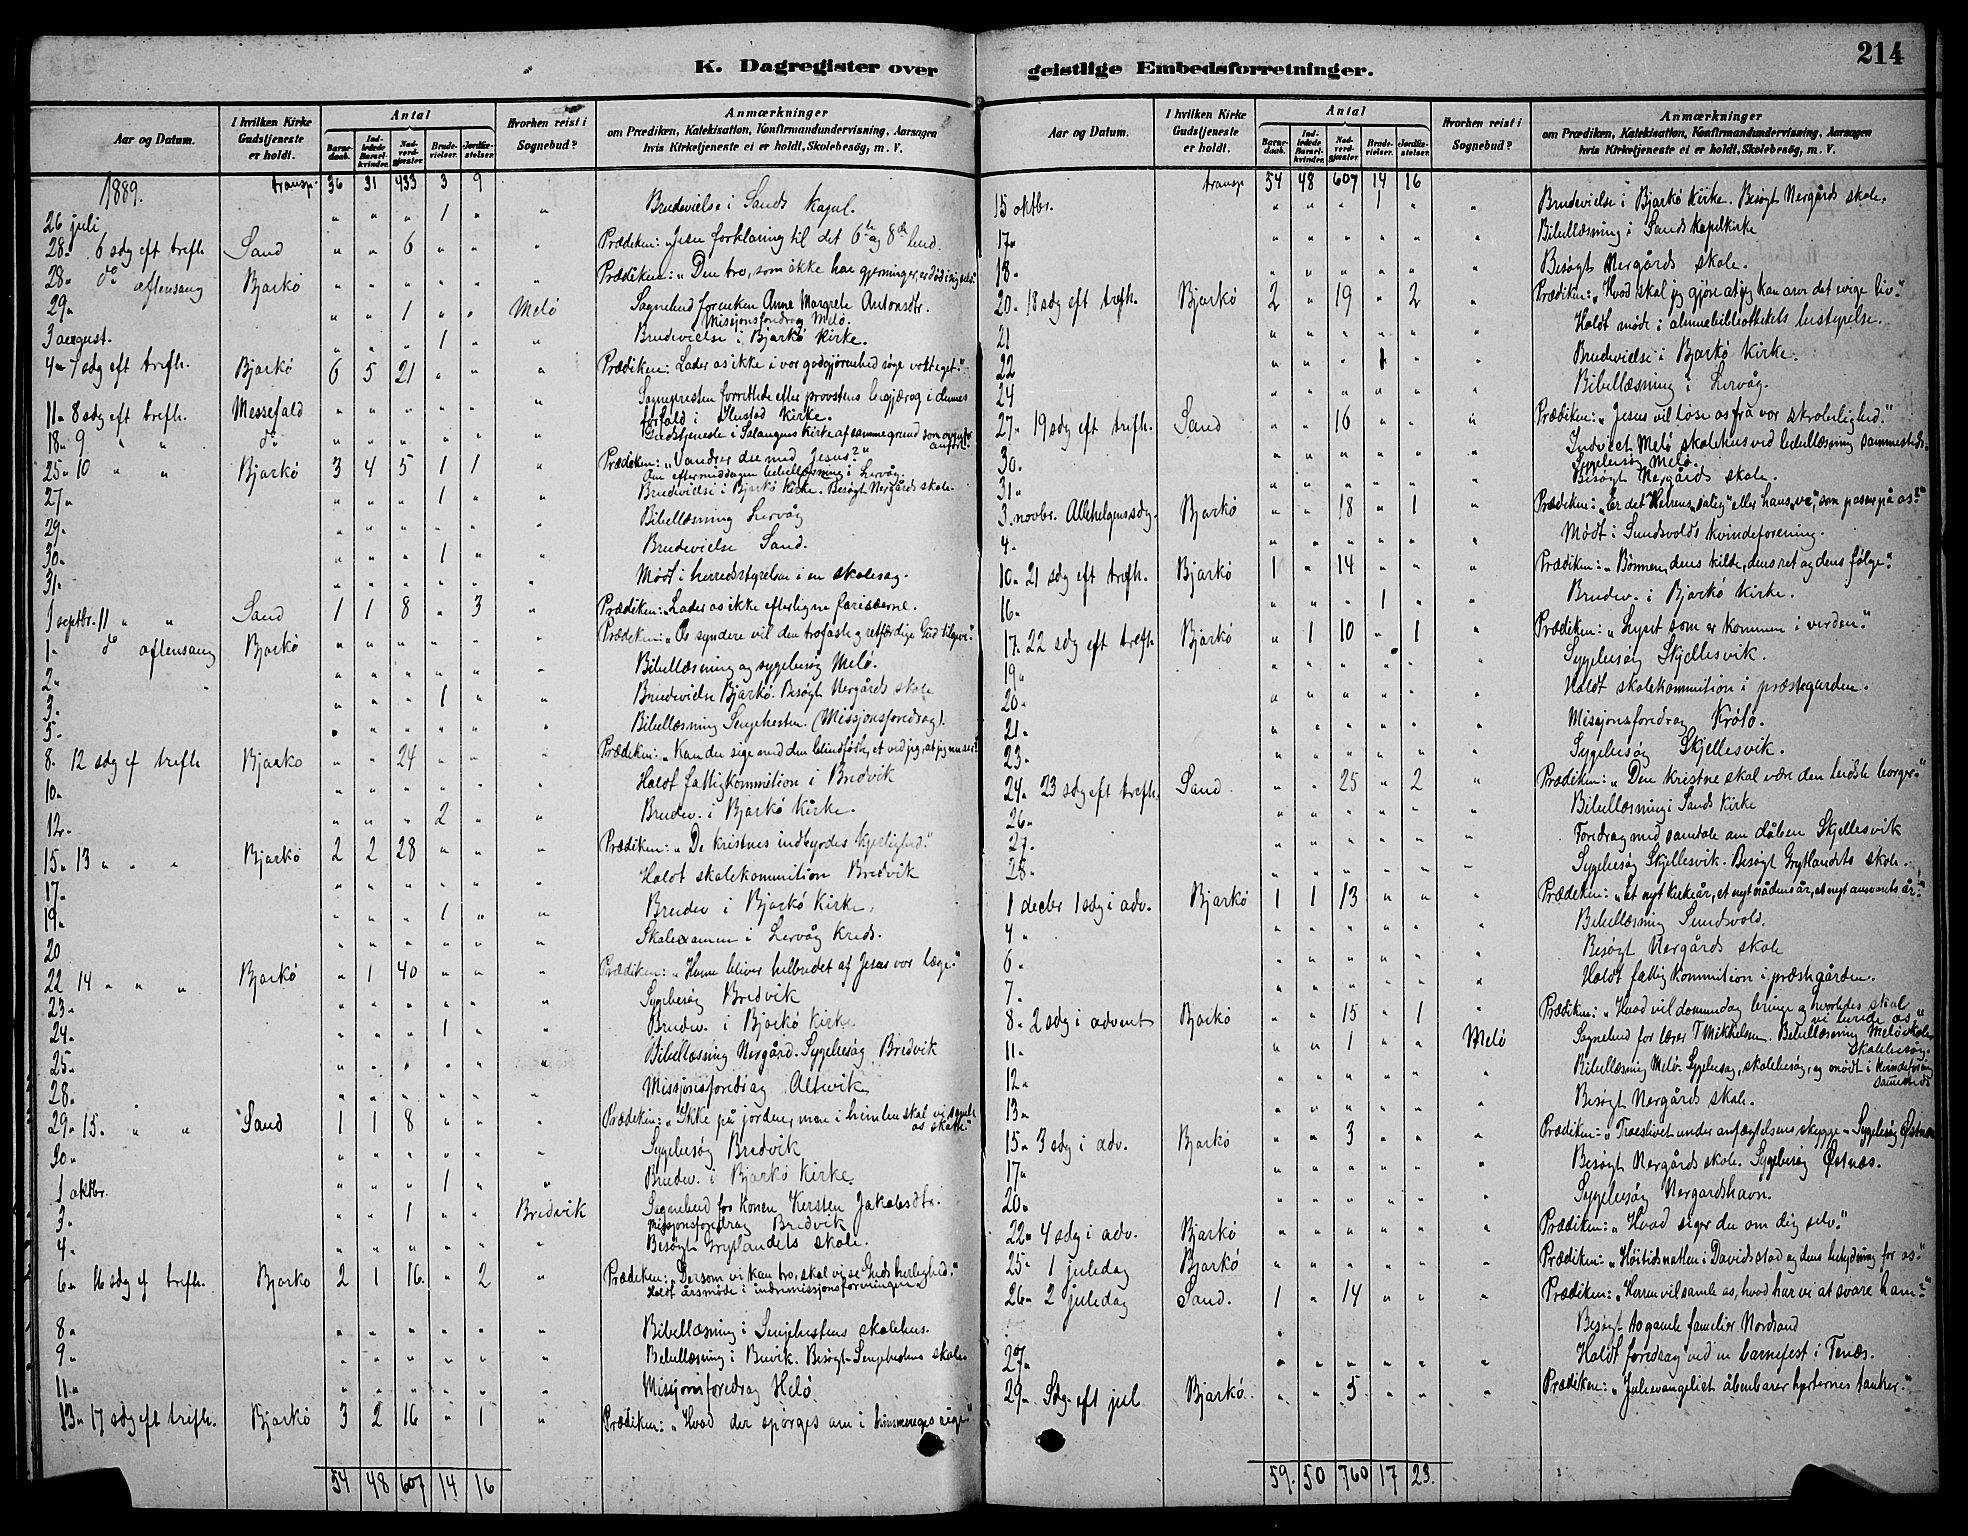 K. Dagregister over geistlige Embedsforretninger.
214
Aar og Datum. | I hvilken Kirke Gudstjeneste er holdt. | Antal | Barnedaab. | Indledede Barselkvinder. | Nadverdgjester. | Brudevielser. | Jordfæstelser. | Hvorhen reist i Sognebud? | Anmærkninger om Prædiken, Katekisation, Konfirmandundervisning, Aarsagen hvis Kirketjeneste ei er holdt, Skolebesøg, m. V.
1889. transp. 36 31 433 3 9
26 juli " " " 1 " " Brudevielse i Sands Kapel.
28 " 6 sdg eft trefh Sand " " 6 " " " Prædiken: "Jesu forklaring til det 6te og 8de bud.
28 " do aftensang Bjarkö " " " " " " Prædiken: "Den tro, som ikke har gjerninger, er död i sig selv."
29 " " " 1 " " Melö Sognebud for enken Anne Margrete Antonsdtr.
Missjonsforedrag Melö.
3 august. " " " 1 " " Brudevielse i Bjarkö Kirke.
4 " 7 sdg eft trefh. Bjarkö 6 5 21 " " " Prædiken: Lader os ikke i vor godgjörenhed söge vort eget."
11 " 8 sdg eft trefh. Messefald " " " " " " Sognepresten forrettede efter provstens begjæring i dennes
forfald i Ibestad Kirke.
18 " 9 " " do " " " " " " Gudstjeneste i Salangens Kirke af samme grund som ovenfor
anfört.
25 " 10 " " Bjarkö 3 4 5 1 1 " Prædiken: "Vandrer du med Jesus?"
Om eftermiddagen bibellæsning i Lervåg.
27 " " " " 1 " " Brudevielse i Bjarkö Kirke. Besögt Nergårds skole
29 " " " " " " " Bibellæsning Lervåg
30 " " " " 1 " " Brudevielse Sand.
31 " " " " " " " Mödt i herredsstyrelsen i en skolesag.
1 septbr. 11 " " Sand 1 1 8 " 3 " Prædiken: "Lader os ikke efterligne farisæerne.
1 " do aftensang Bjarkö " " " " " " Prædiken: "Os syndere vil den trofaste og retfærdige Gud tilgive."
2 " " " " " " " Bibellæsning og sygebesög Melö.
3 " " " " 1 " " Brudevielse Bjarkö. Besögt Nergårds skole
5 " " " " " " " Bibellæsning Senjehesten. (Missjonsforedrag).
8 " 12 sdg ef trefh Bjarkö " " 24 " " " Prædiken: "Kan du sige med den blindfödte, et ved jeg, at jeg nu ser?"
10 " " " " " " " Holdt fattigkommition i Bredvik
12 " " " " 2 " " Brudev. i Bjarkö Kirke.
15 " 13 " " Bjarkö 2 2 28 " " " Prædiken: "De kristnes indbyrdes kjerlighed."
17 " " " " " " " Holdt skolekommition Bredvik
19 " " " " 1 " " Brudev i Bjarkö Kirke.
20 " " " " " " Skoleexamen i Lervåg Kreds.
22 14 " " " Bjarkö " 1 40 " " " Prædiken: "Hvem bliver helbredet af Jesus vor læge."
23 " " " " " " " Sygebesög Bredvik
24 " " " " 1 " " Brudev. i Bjarkö Kirke
25 " " " " " " " Bibellæsning Nergård. Sygebesög Bredvik
28 " " " " " " " Missjonsforedrag Altevik
29 " 15 " " Sand 1 1 8 " " " Prædiken: "Ikke på jorden, men i himlen skal vi samle
os skatte"
30 " " " " " " " Sygebesög Bredvik
1 oktbr. " " " 1 " " Brudev. i Bjarkö Kirke
3 " " " 1 " " Bredvik Sognebud for Konen Kersten Jakobsdtr.
Missjonsforedrag Bredvik
4 " " " " " " " Besögt Grytlandets skole.
6 " 16 sdg ef trefh. Bjarkö 2 1 16 " 2 " Prædiken: "Dersom vi kan tro, skal vi se Guds herlighed."
Holdt årsmöde i indremissjonsforeningen
8 " " " " " " " Bibellæsning i Senjehestens skolehus.
9 " " " " " " " Bibellæsning i Buvik. Besögt Senjehestens skole
11 " " " " " " " Missjonsforedrag Helö
13 " 17 sdg eft trefh. Bjarkö 3 2 16 " 1 " Prædiken: "Hvad der spörges om i himmeriges rige"
54 48 607 14 16
Aar og Datum. | I hvilken Kirke Gudstjeneste er holdt. | Antal | Barnedaab. | Indledede Barselkvinder. | Nadverdgjester. | Brudevielser. | Jordfæstelser. | Hvorhen reist i Sognebud? | Anmærkninger om Prædiken, Katekisation, Konfirmandundervisning, Aarsagen hvis Kirketjeneste ei er holdt, Skolebesøg, m. V.
transp 54 48 607 14 16
15 oktbr. " " " 1 " " Brudevielse i Bjarkö Kirke. Besögt Nergårds skole.
17 " " " " " " " Bibellæsning i Sands Kapelkirke
18 " " " " " " " Besögt Nergårds skole.
20 " 18 sdg eft trefh. Bjarkö 2 " 19 " 2 " Prædiken: "Hvad skal jeg gjöre at jeg kan arve det evige liv."
21 " " " " " " Holdt möde i almuebibliothekets bestyrelse.
22 " " " 1 " " Brudevielse i Bjarkö Kirke.
24 " " " " " " Bibellæsning i Lervåg.
27 " 19 sdg eft trefh. Sand " " 16 " " " Prædiken: "Jesus vil löse os fra vor skröbelighed."
30 " " " " " " " Indviet Melö skolehus ved bibellæsning sammesteds.
Sygebesög Melö.
31 " " " " " " " Besögt Nergårds skole.
3 novbr. Allehelgenssdg. Bjarkö " " 18 " 1 " Prædiken: "Er det Herrens "salig" eller hans "ve", som passer på os?"
4 " " " " " " " Mödt i Sundsvolds Kvindeforening.
10 " 21 sdg eft trefh. Bjarkö 1 " 14 " " " Prædiken: "Bönnen, dens kilde, dens ret og dens fölge."
16 " " " " 1 " " Brudev. i Bjarkö Kirke.
17 " 22 sdg eft trefh Bjarkö " 1 10 " 1 " Prædiken: "Lyset som er kommen i verden."
19 " " " " " " " Sygebesög Skjellesvik.
20 " " " " " " " Holdt skolekommition i præstegarden.
21 " " " " " " " Missjonsforedrag Krölö.
23 " " " " " " " Sygebesög Skjellesvik.
24 " 23 sdg eft trefh. Sand. " " 25 " 2 " Prædiken: "Den kristne skal være den bedste borger."
26 " " " " " " " Bibellæsning i Sands Kirke
27 " " " " " " " Foredrag med samtale om dåben Skjellesvik
28 " " " " " " " Sygebesög Skjellesvik. Besögt Grytlandets skole.
1 decbr 1 sdg i adv. Bjarkö 1 1 13 " " " Prædiken: "Et nyt kirkeår, et nyt nådens år, et nyt ansvarets år."
4 " " " " " " " Bibellæsning Sundsvold.
6 " " " " " " " Besögt Nergårds skole
7 " " " " " " " Holdt fattigkommition i præstgården.
8 " 2 sdg i advent Bjarkö " " 15 " 1 " Prædiken: "Hvad vil dommedag bringe og hvorledes skal
vi berede os"
11 " " " 1 " " Melö Sognebud for lærer T Mikkelsen. Bibellæsning Melö skole
Skolebesög.
12 " " " " " " " Bibellæsning Melö. Sygebesög, skolebesög, og mödt i Kvindeforening
sammesteds
13 " " " " " " " Besögt Nergårds skole.
15 " 3 sdg i adv. Bjarkö " " 3 " " " Prædiken: "Troeslivet under anfægtelsens skygge" Sygebesög Östnæs
17 " " " " " " " Besögt Nergårds skole. Sygebesög Östnæs.
20 " " " " " " " Sygebesög Nergardshavn.
22 " 4 sdg i adv. Bjarkö " " " " " " Prædiken: "Hvad siger du om dig selv."
25 " 1 juledag Bjarkö " " " " " " Prædiken: "Höitidsnatten i Davids stad og dens betydning for os."
26 " 2 juledag Sand. 1 " 14 " " " Prædiken: "Herren vil samle os, hvad har vi at svare ham?"
Besögt to gamle familier Nordsand
27 " " " " " " " Holdt foredrag ved en barnefest i Fenæs.
29 " Sdg eft jul Bjarkö " " 5 " " " Prædiken: "Juleevangeliet åbenbarer hjerternes tanker."
59. 50 760 17 23.